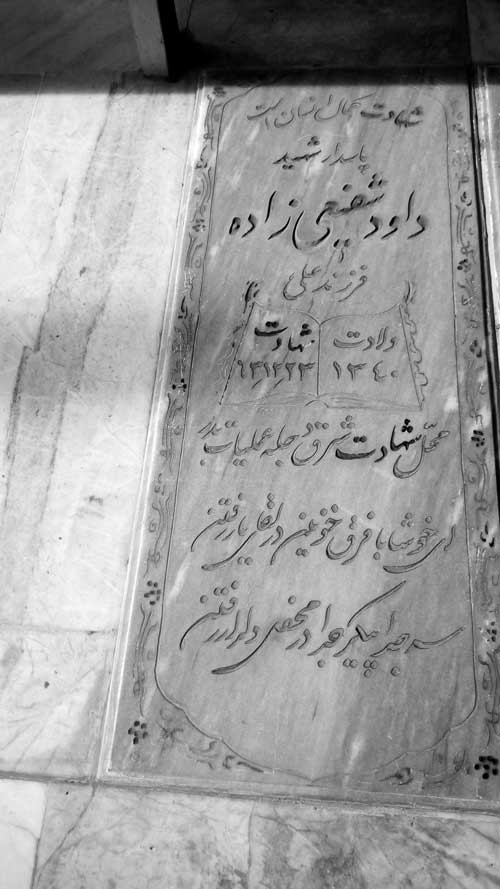 شهادت کمال انسان است
پاسدار شهید
داود شفیعی زاده
فرزند علی
ولادت شهادت
۱۳۴۰ ۶۳٫۱۲٫۲۳
محل شهادت شرق دجله عملیات بدر
ای خوشا با فرق خونین در لقای یار رفتن
سر جدا پیکر جدا در محفل دلدار رفتن